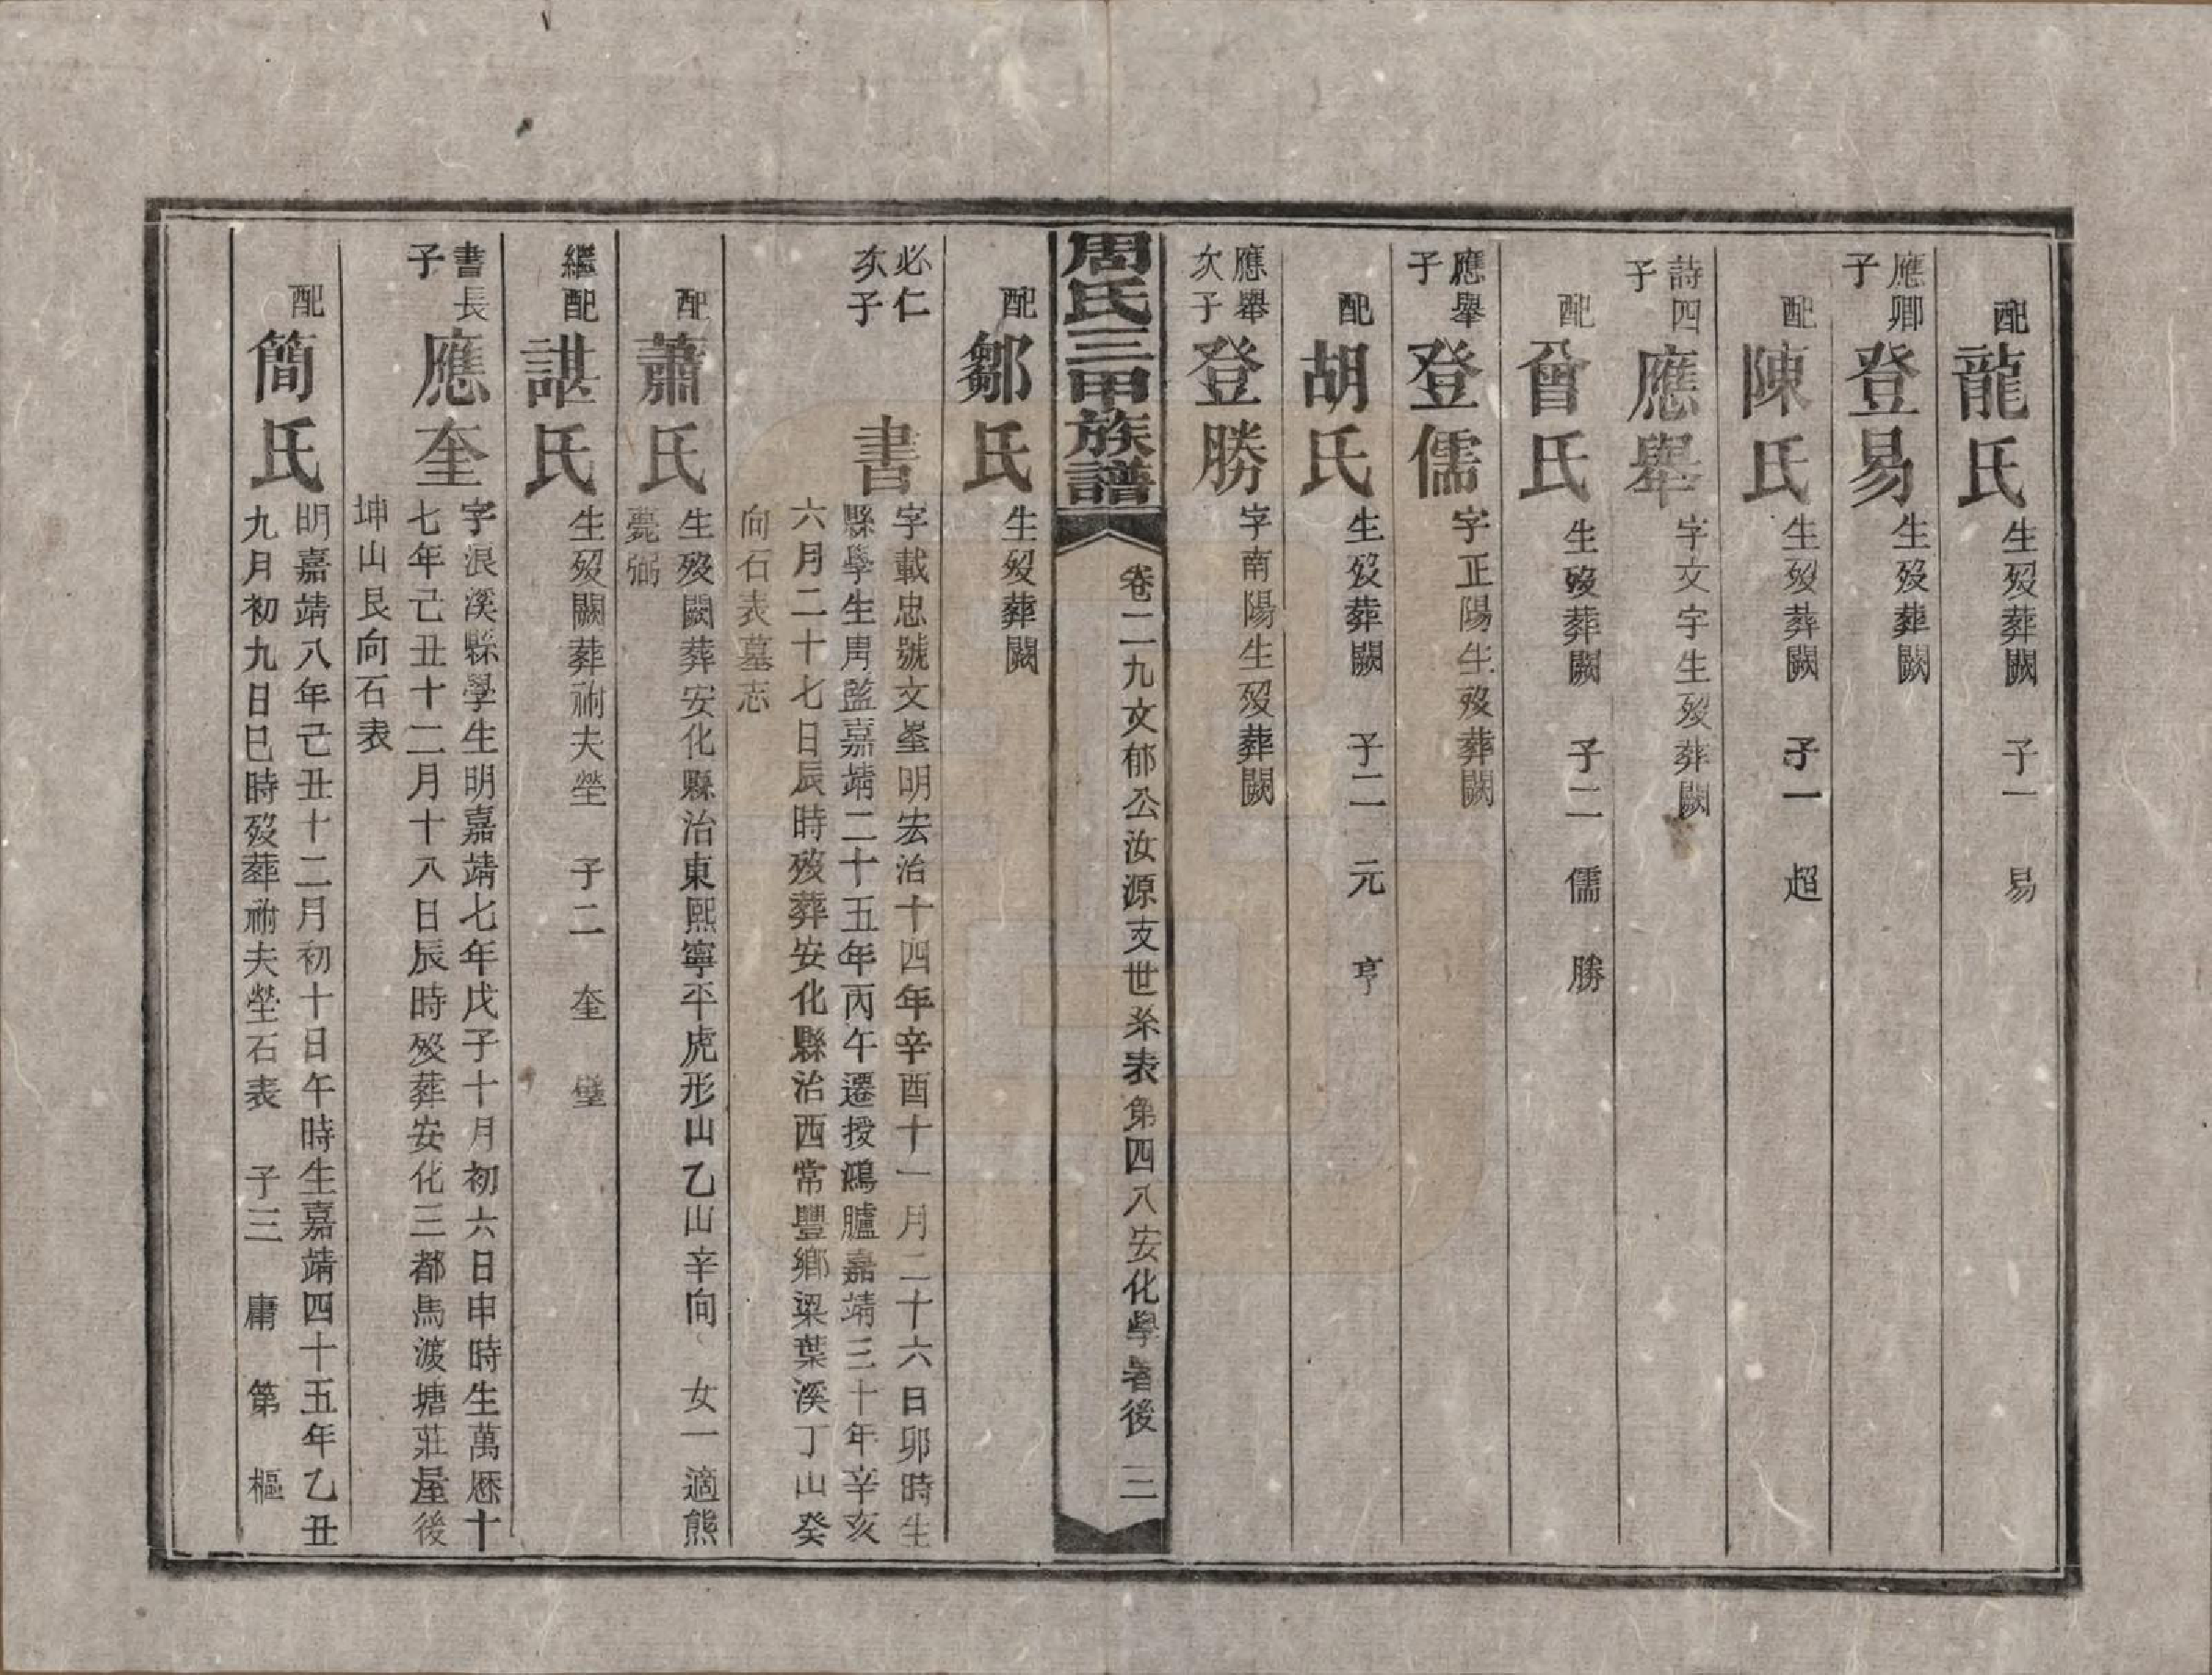 配龍氏生歿葬闕　子一　易
應卿子登易生歿葬闕
配陳氏生歿葬闕　子一　超
詩四子應舉字文字生歿葬闕
配曾氏生歿葬闕　子二　儒　勝
應舉子登儒字正陽生歿葬闕
配胡氏生歿葬闕　子二　元　亨
應舉次子登勝字南陽生歿葬闕
周氏三甲族譜　卷二九文郁公汝源支世系表第四八安化學書後　三
配鄒氏生歿葬闕
必仁次子書字載忠號文峚明宏治十四年辛酉十一月二十六日卯時生
縣學生胄監嘉靖二十五年丙午選授鴻臚嘉靖三十年辛亥
六月二十七日辰時歿葬安化縣治西常豐鄉梁葉溪丁山癸
向石表墓志
配蕭氏生歿闕葬安化縣治東熙寧平虎形山乙山辛向　女一適熊
堯弼
繼配諶氏生歿闕葬祔夫塋　子二　奎　璧
書長子應奎字浪溪縣學生明嘉靖七年戊子十月初六日申時生萬厯十
七年己丑十二月十八日辰時歿葬安化三都馬渡塘莊屋後
坤山艮向石表
配簡氏明嘉靖八年己丑十二月初十日午時生嘉靖四十五年乙丑
九月初九日巳時歿葬祔夫塋石表　子三　庸　第　樞